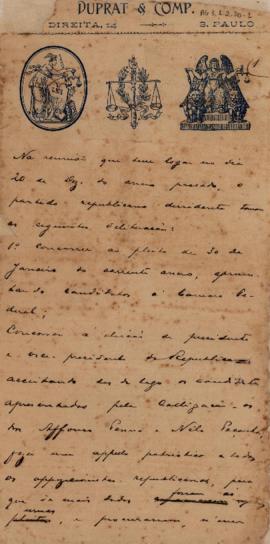 DUPRAT & COMP.
DIREITA, 14 S. PAULO
Na reunião que teve logar no dia
20 de Dez. do anno passado, o
partido republicano dissidente tomou
as seguintes deliberações:
1ª Concorrer ao pleito de 30 de
Janeiro do corrente anno, apresen-
tando candidatos á Camara Fe-
deral;
Concorrer á eleição de presidente
e vice presidente da Republica
acceitando desde logo os candidatos
apresentados pela Colligação os
drs Affonso Penna e Nilo Peçanha,
fazer um appello patriotico a todos
os republicanos, para
que da mais
urnas, e